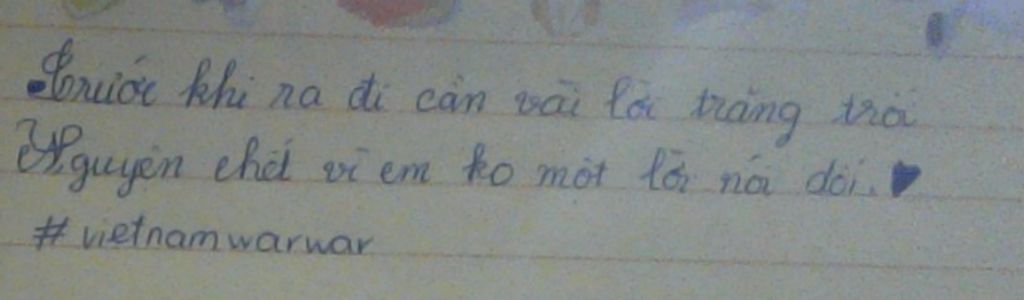 Trước khi ra đi cần vài lời trăng trối
Nguyện chết vì em ko một lời nói dối.
#vietnamwarwar